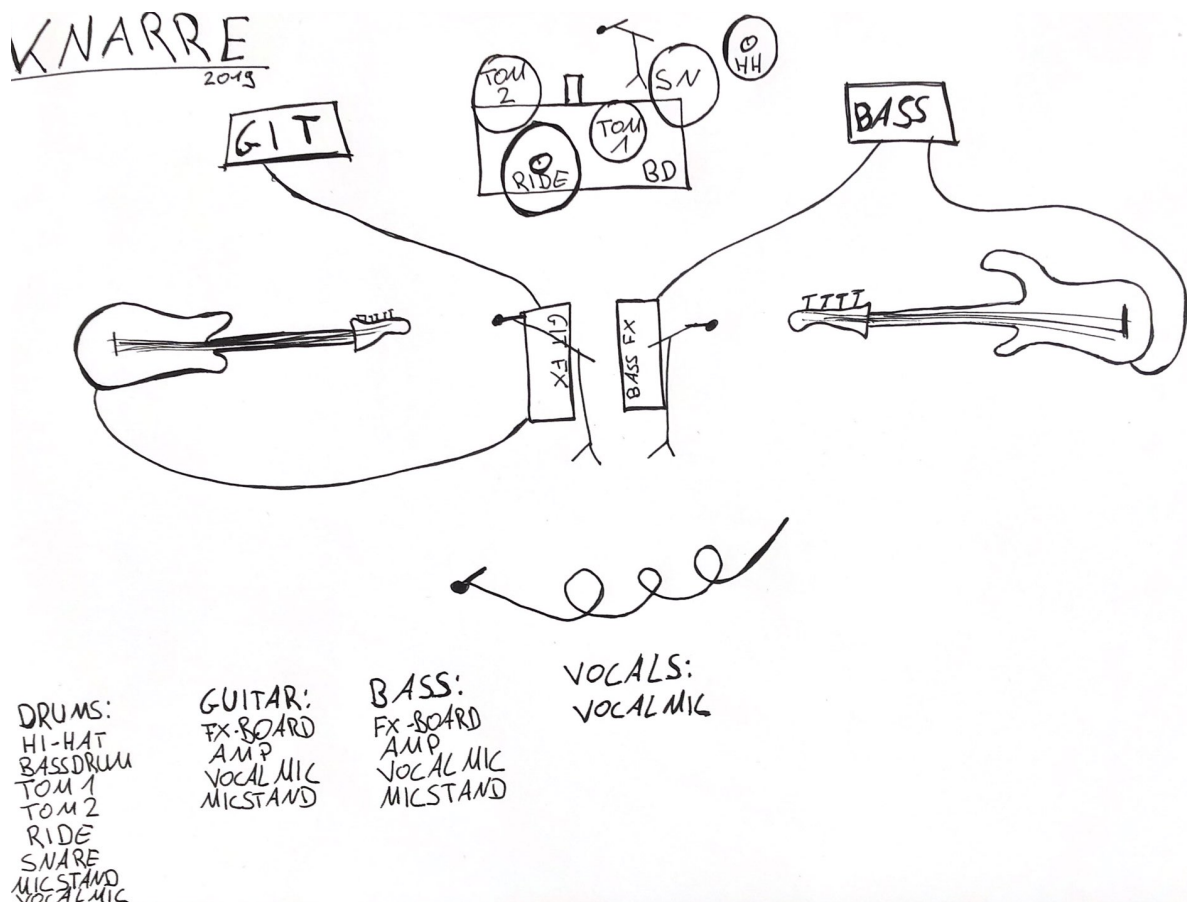 KNARRE
2019
GIT
TOM
2
SN
HH
BASS
TOM
1
RIDE
BD
GIT FX
BASS FX
DRUMS:
HI-HAT
BASSDRUM
TOM 1
TOM 2
RIDE
SNARE
MICSTAND
VOCALMIC
GUITAR:
FX-BOARD
AMP
VOCAL MIC
MICSTAND
BASS:
FX-BOARD
AMP
VOCAL MIC
MICSTAND
VOCALS:
VOCALMIC